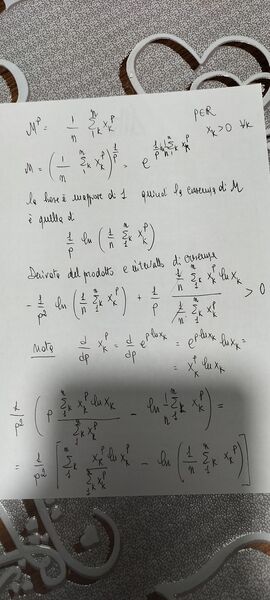 M^P = 1/n Σ_1^n k x_k^P PER x_k > 0 ∀k
M = (1/n Σ_1^n k x_k^P)^(1/P) = e^(1/P ln 1/n Σ_1^n k x_k^P)
la base è maggiore di 1 quindi la crescenza di M
è quella di
1/P ln (1/n Σ_1^n k x_k^P)
Derivata del prodotto e intervalli di crescenza
- 1/P² ln (1/n Σ_1^n k x_k^P) + 1/P (1/n Σ_1^n k x_k^P ln x_k)/(1/n Σ_1^n k x_k^P) > 0
nota d/dp x_k^P = d/dp e^(P ln x_k) = e^(P ln x_k) ln x_k =
= x_k^P ln x_k
1/P² (P (Σ_1^n k x_k^P ln x_k)/(Σ_1^n k x_k^P) - ln 1/n Σ_1^n k x_k^P) =
= 1/P² [Σ_1^n k (x_k^P ln x_k^P)/(Σ_1^n k x_k^P) - ln (1/n Σ_1^n k x_k^P)]